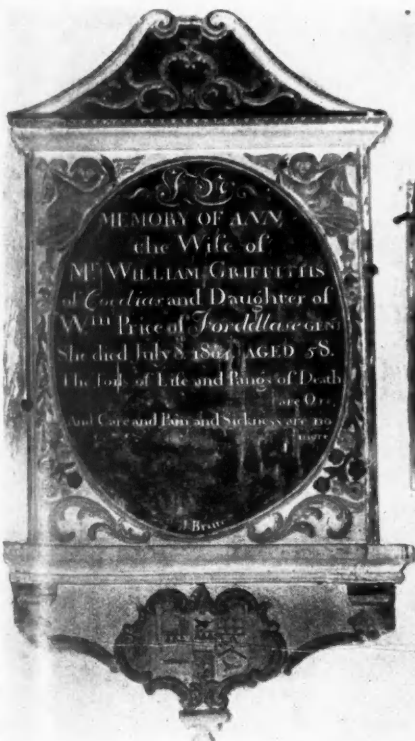 IN
MEMORY OF ANN
the Wife of
Mr. WILLIAM GRIFFITHS
of Coedias and Daughter of
Wm Price of Forddlase GENT
She died July 8. 1804, AGED 58.
The Toils of Life and Pangs of Death
are O'er,
And Care and Pain and Sickness are no
more
J. Brute